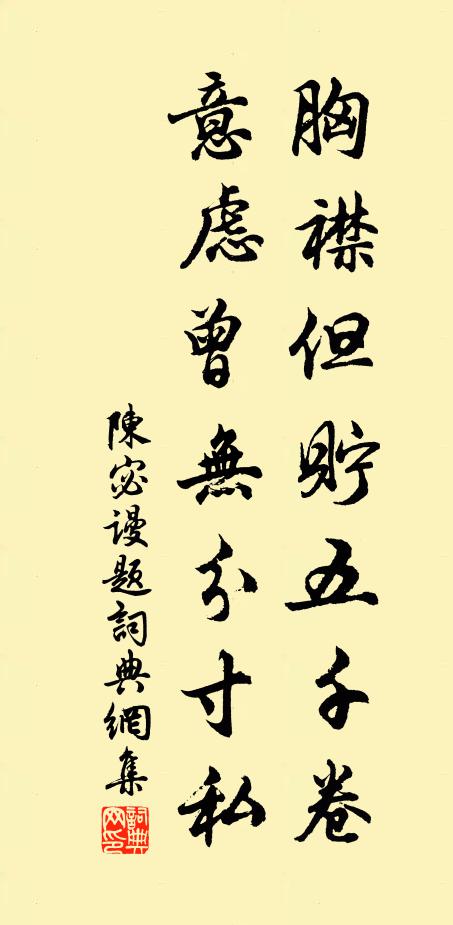 胸襟但貯五千卷
意慮曾無分寸私
陳宓謾題詞典網集
詞典網印